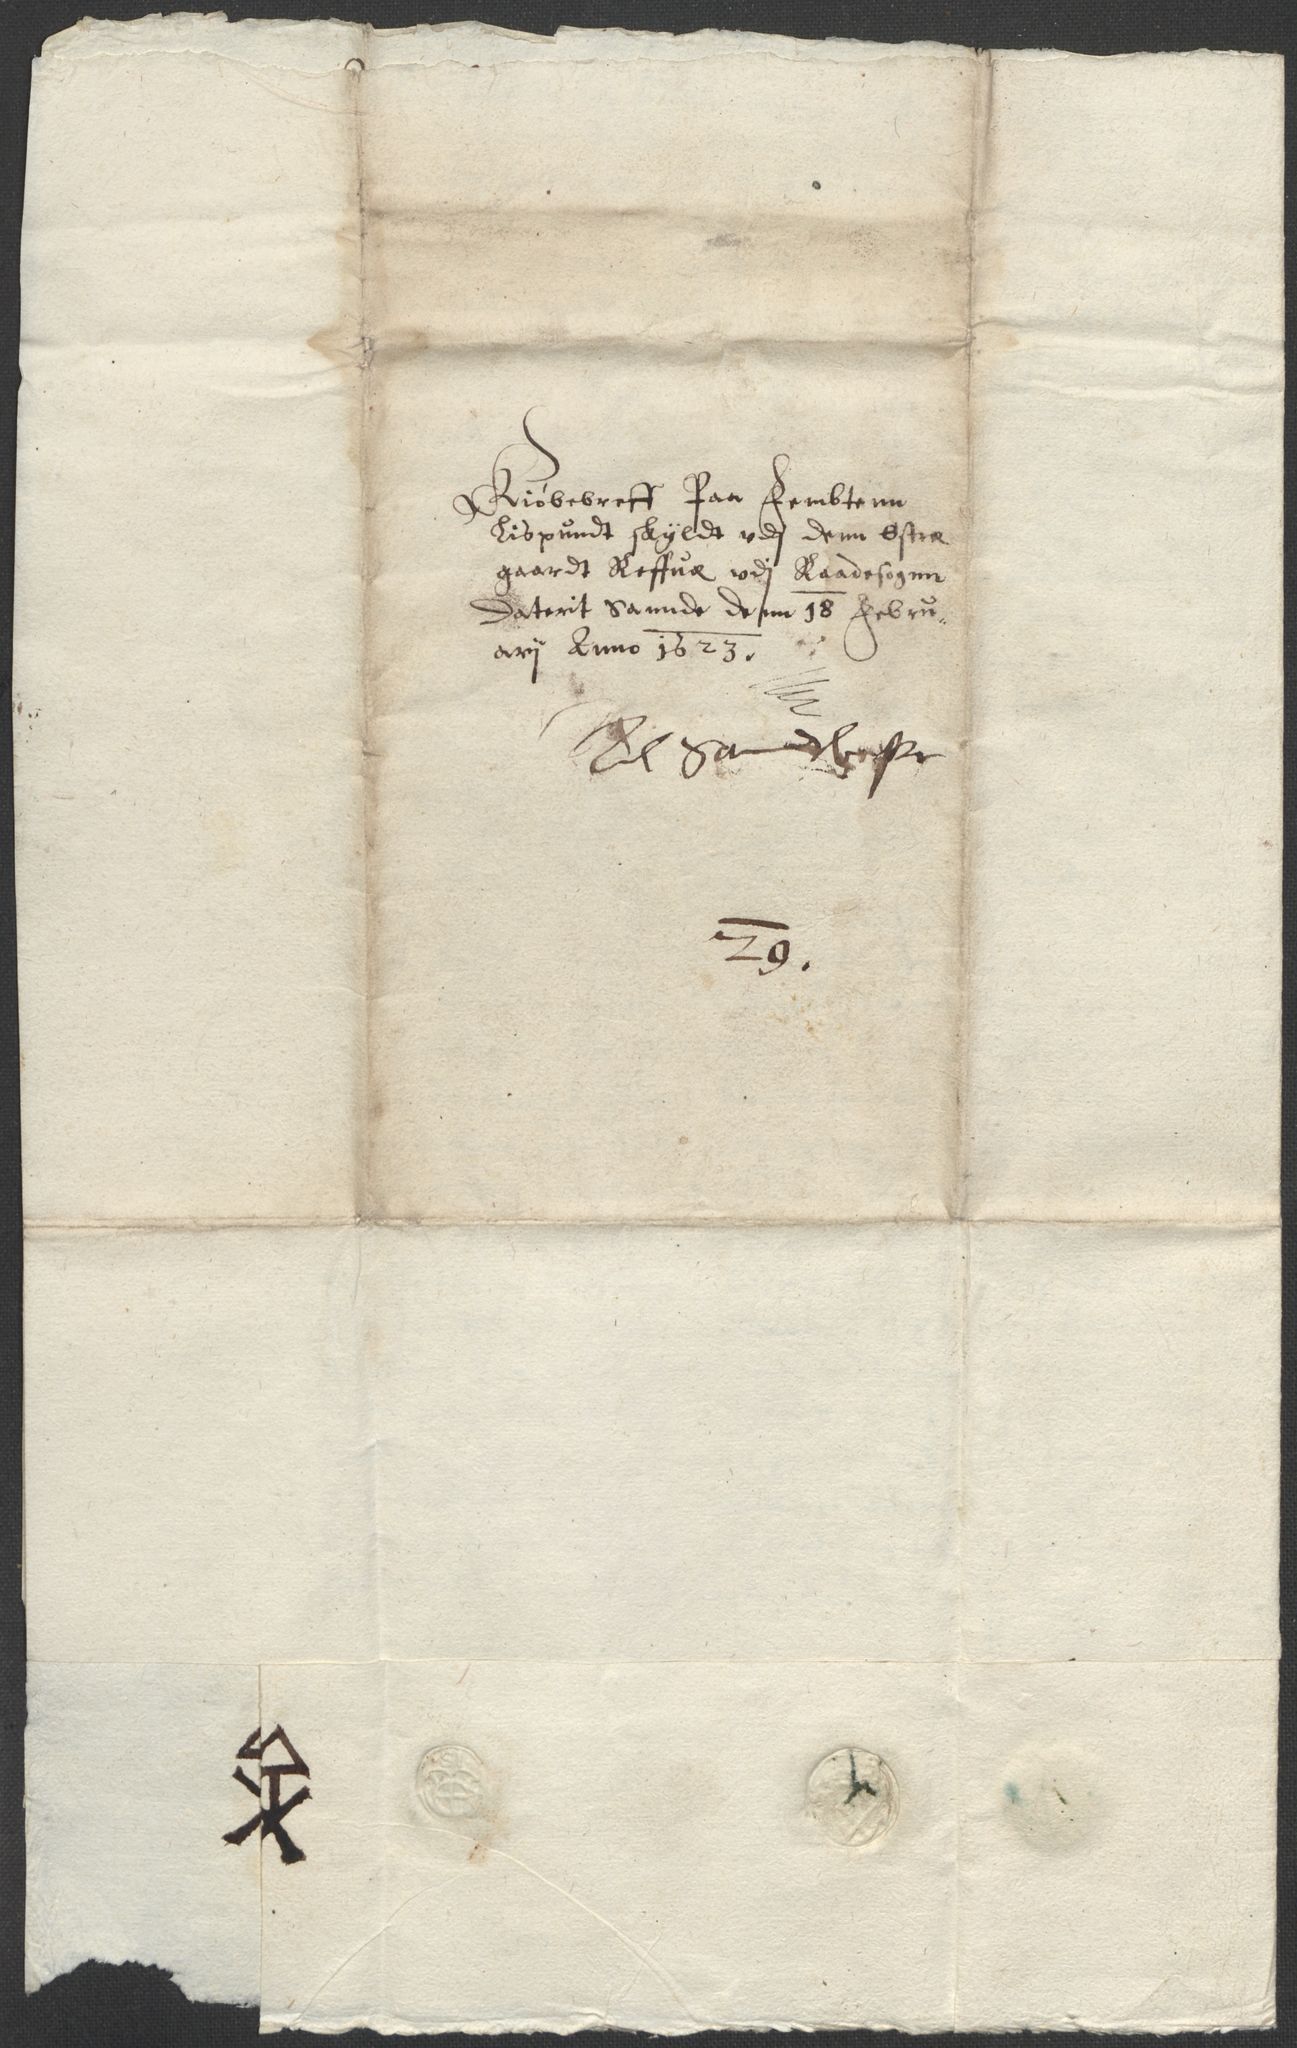 Kiöbebreff Paa Fembtenn
Lispundt skyldt vdj denn Østre
gaardt Reffue vdj Raadesognn
Daterit Sannde denn 18 Febru-
arij Anno 1623.
29.